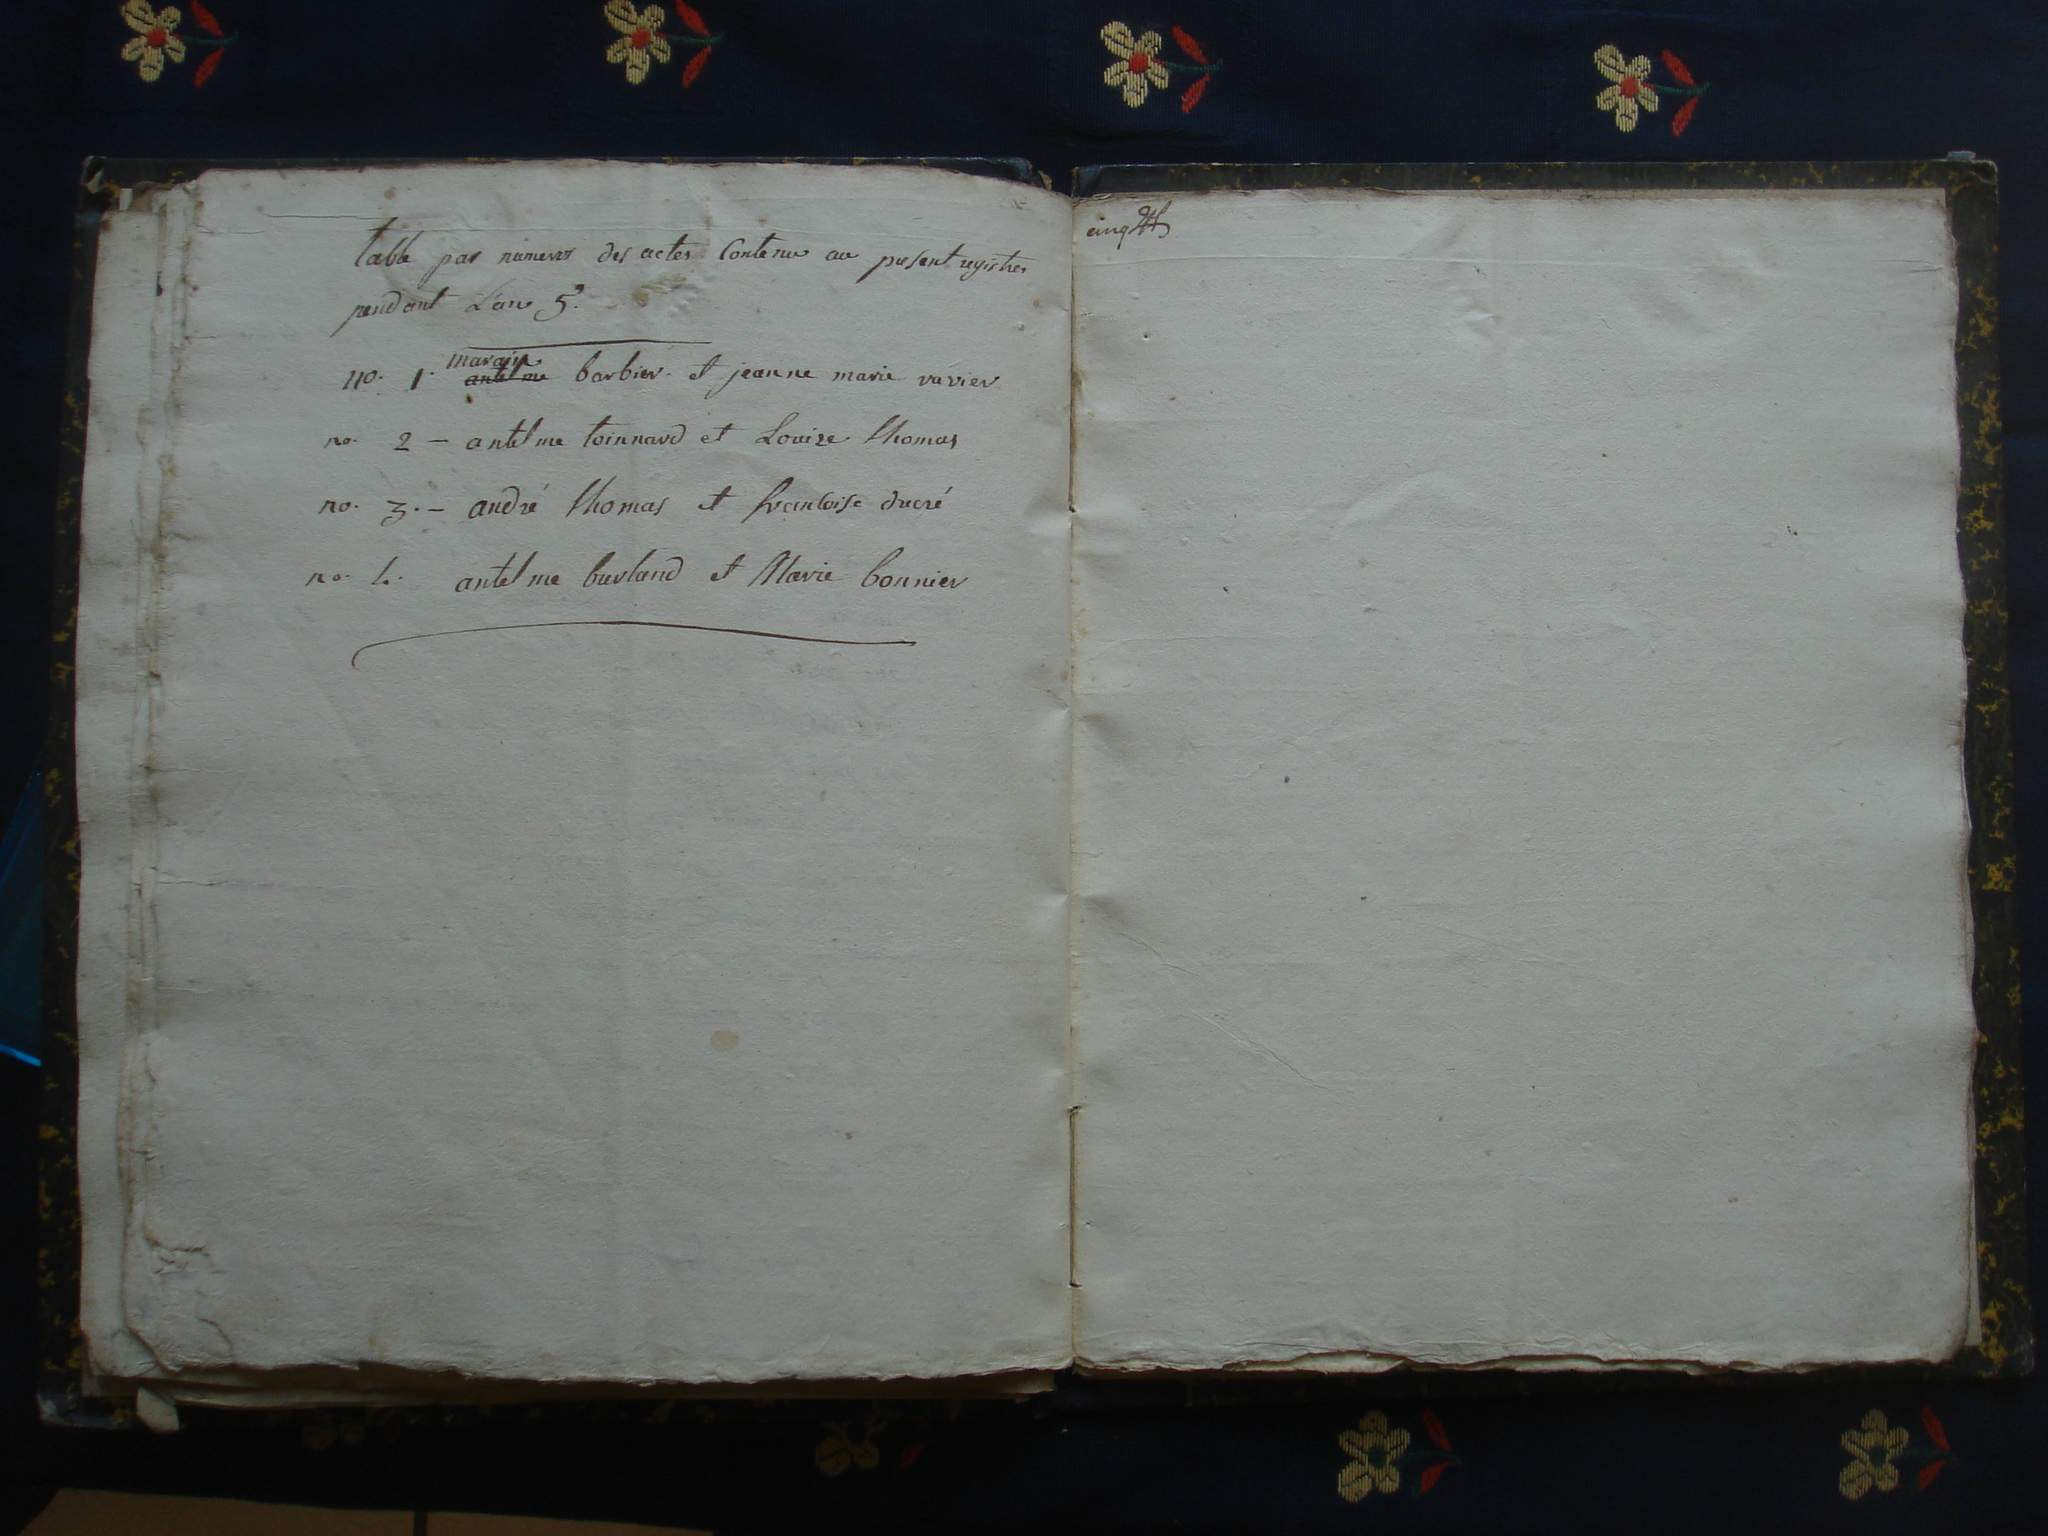 table par numeros des actes Contenu au present registres
pendant L'an 5e.
no. 1. marain
antelme barbier et jeanne marie ravier
no. 2 — antelme toinnard et Louise thomas
no. 3. — andré thomas et francoise ducré
no. 4. antelme burland et Marie bonnier
cinq